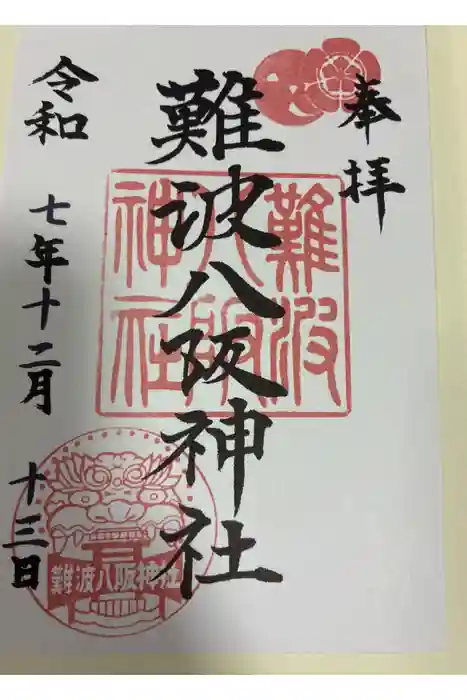 奉拝
難波八阪神社
難波
八阪
神社
令和
七年十二月
十三日
難波八阪神社